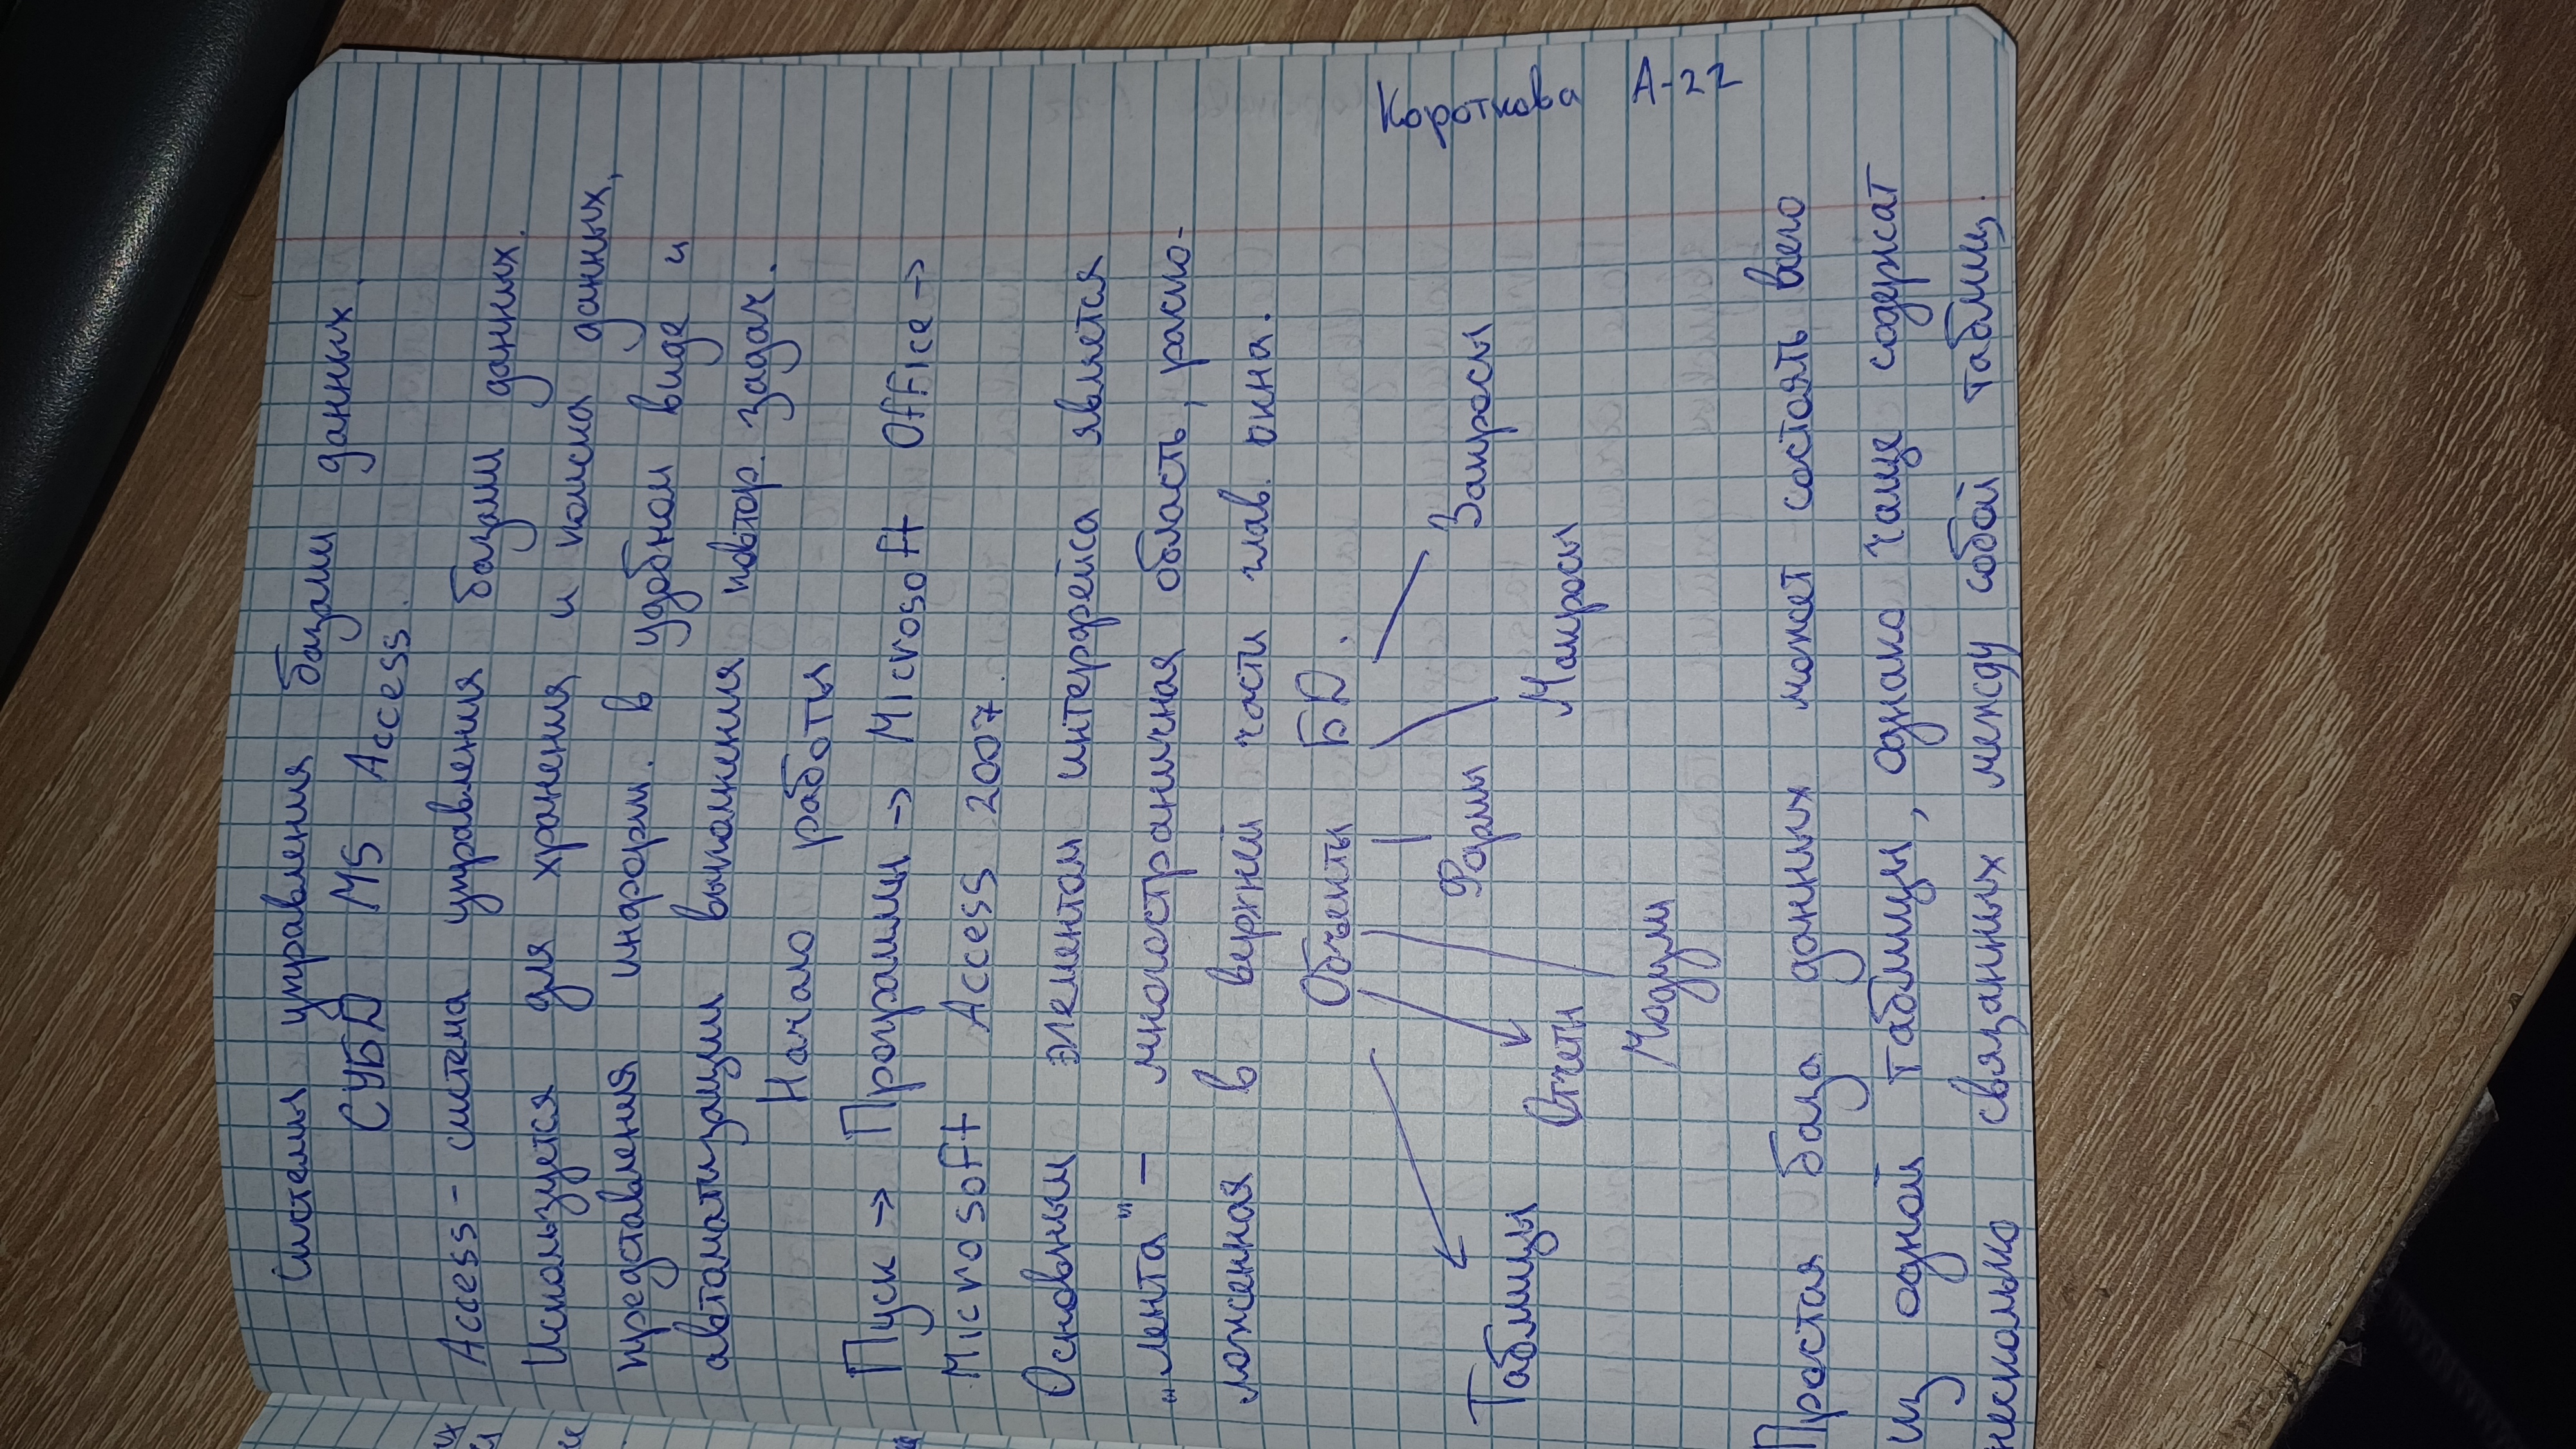 Системы управления базами данных
СУБД MS Access.
Access - система управления базами данных.
Используется для хранения и поиска данных,
представления информ. в удобном виде и
автоматизации выполнения повтор. задач.
Начало работы
Пуск → Программы → Microsoft Office →
Microsoft Access 2007.
Основным элементом интерфейса является
„лента" – многостраничная область, распо-
ложенная в верхней части глав. окна.
Объекты БД.
Таблицы Отчеты Формы Макросы Запросы
Модули
Короткова А-22
Простая база данных может состоять всего
из одной таблицы, однако чаще содержат
несколько связанных между собой таблиц.